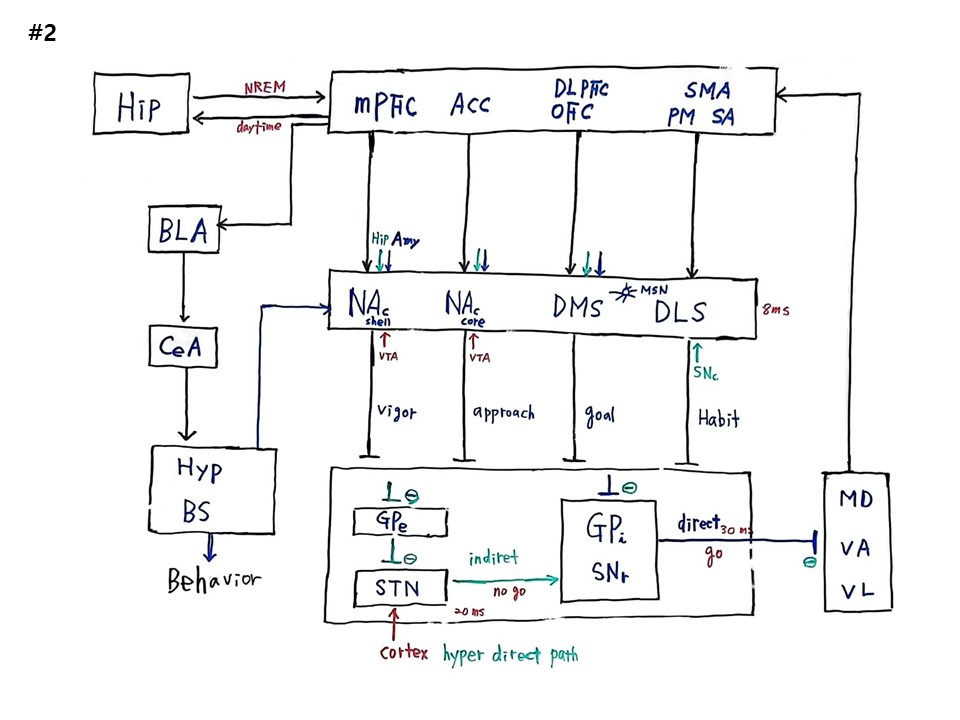 #2
Hip
NREM
daytime
mPFC ACC DLPFC SMA
OFC PM SA
BLA
Hip Amy
NAc NAc DMS MSN DLS
shell core
8ms
VTA VTA SNc
CeA
vigor approach goal Habit
Hyp
BS
Behavior
⊖ ⊖
GPe
⊖
STN
indiret
no go
20 ms
GPi
SNr
direct 30 ms
go
⊖
MD
VA
VL
cortex hyper direct path